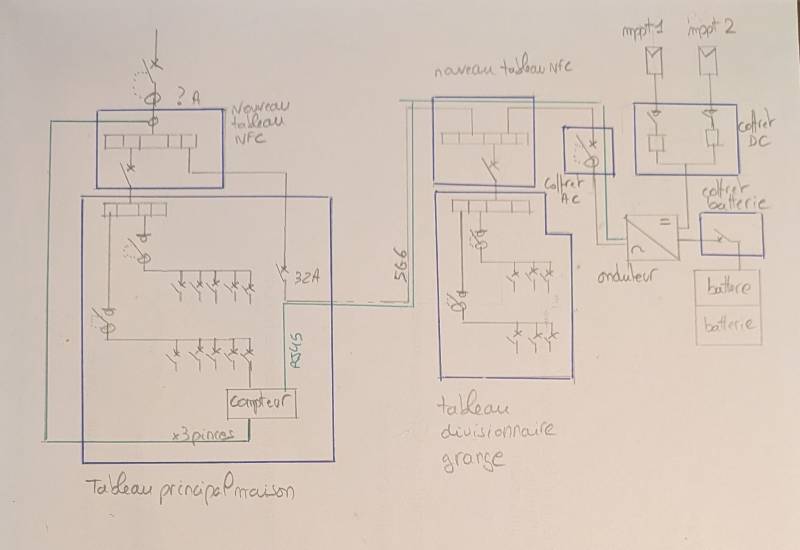 mppt 1
mppt 2
nouveau tableau NFC
? A
Nouveau
tableau
NFC
coffret
DC
coffret
AC
coffret
batterie
32A
5G6
onduteur
batterie
batterie
RJ45
Compteur
x3 pinces
tableau
divisionnaire
grange
Tableau principal maison